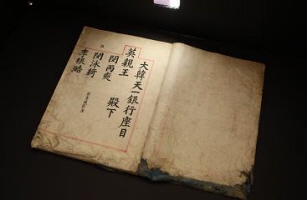 大韓天一銀行座目
英親王 殿下
閔丙奭
閔泳綺
李根澔